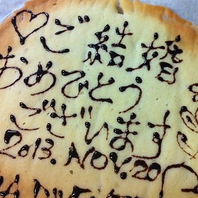 ♡ご結婚
おめでとう
ございます♡
2013. NOV. 20